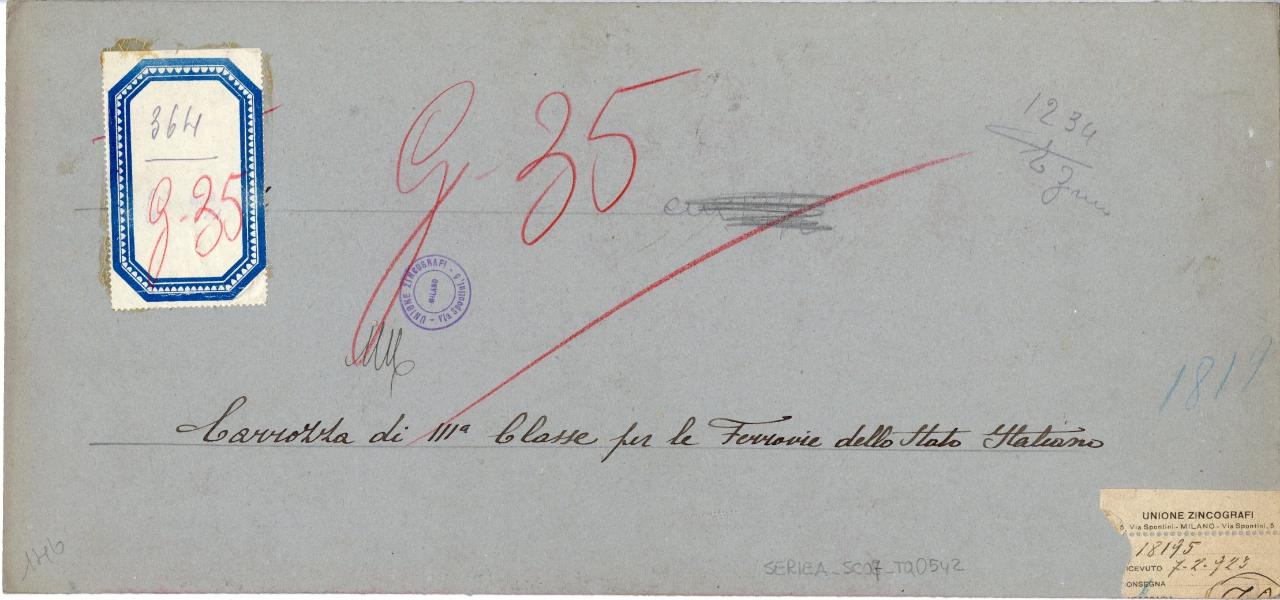 364
G-35
G-35
1234
UNIONE ZINCOGRAFI - Via Spontini, 5
MILANO
1819
Carrozza di IIIª Classe per le Ferrovie dello Stato Italiano
UNIONE ZINCOGRAFI
5, Via Spontini - MILANO - Via Spontini, 5
18195
ICEVUTO 7-2-923
ONSEGNA
146
SERIEA_SC07_TA0542